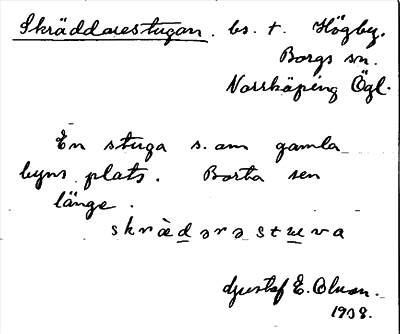 Skräddarestugan. bs. t. Högby.
Borgs sn.
Norrköping Ögl.
En stuga s. om gamla
byns plats. Borta sen
länge.
skrädərəstuva
Gustaf E. Olsson.
1938.